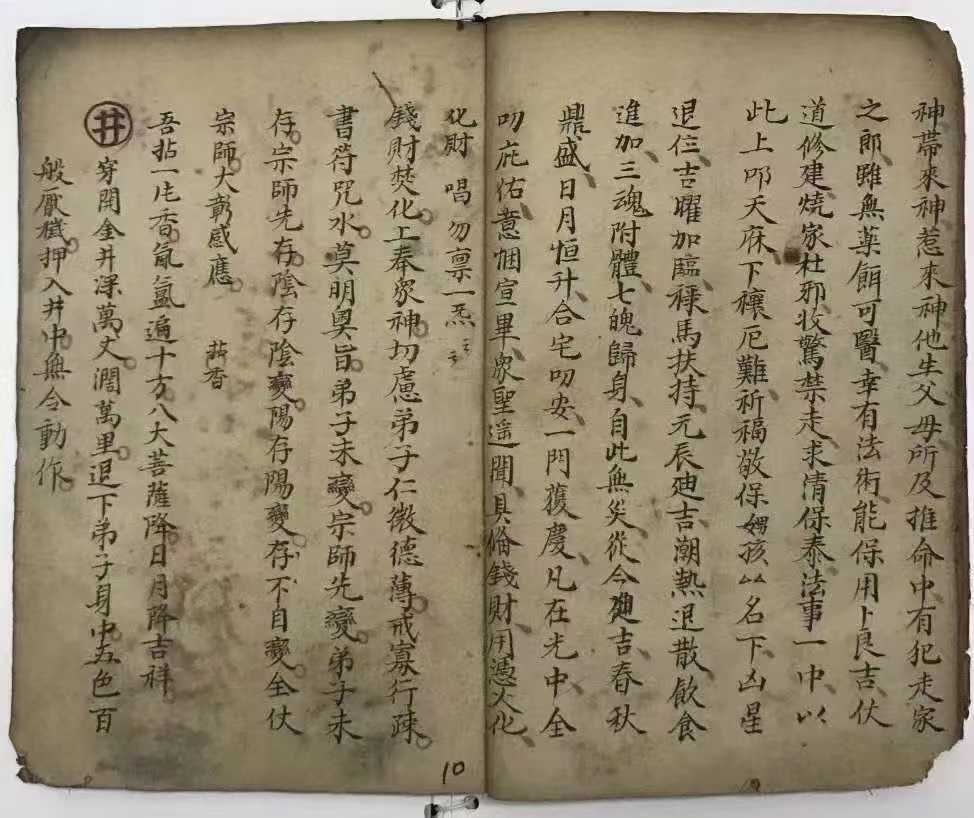 神帶來神惹來神他生父母所及推命中有犯走家
之郎雖無藥餌可醫幸有法術能保用卜良吉伏
道修建燒家杜邪收驚禁走求清保泰法事一中以
此上叩天庥下禳厄難祈福敬保嬰孩厶名下凶星
退位吉曜加臨祿馬扶持元辰迪吉潮熱退散飲食
進加三魂附體七魄歸身自此無災從今迪吉春秋
鼎盛日月恒升合宅叨安一門獲慶凡在光中全
叨庇佑意悃宣畢眾聖遥聞具俻錢財用憑火化
化財 唱 勿禀一炁
錢財焚化上奉眾神切慮弟子仁微德薄戒寡行疎
書符咒水莫明奧旨弟子未變宗師先變弟子未
存宗師先存陰存陰變陽存陽變存不自變全仗
宗師大彰感應 拈香
吾拈一炷香氤氳遍十方八大菩薩降日月降吉祥
井 穿開金井深萬丈濶萬里退下弟子身中五色百
般厭穢押入井中無令動作
10